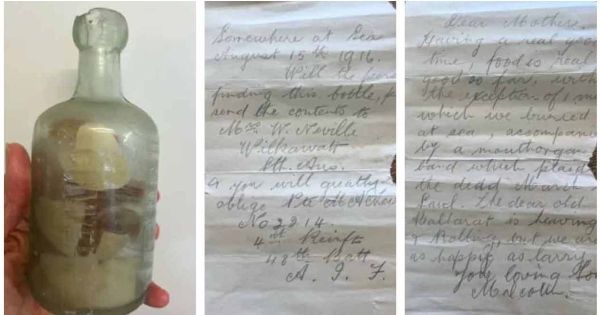 Somewhere at Sea
August 15th 1916.
Will the person
finding this bottle,
send the contents to
Mrs W. Neville
Wilkawatt
Sth. Aus.
& you will greatly
oblige Pte M A Neville
No 2914.
4th Reinft
48th Batt
A. I. F.
Dear Mother.
Having a real good
time, food is real
good so far, with
the exception of 1 meal
which we burried
at sea, accompanied
by a mouthorgan
band which plaid
the dedd March
Saul. The dear old
Ballarat is heaving
& Rolling, but we are
as happy as larry
Your loving Son
Malcolm.